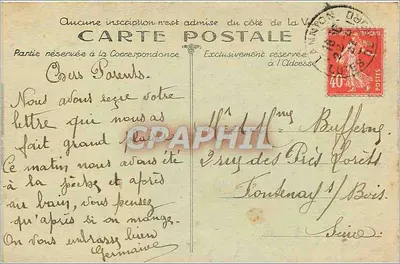 Aucune inscription n'est admise du côté de la V
CARTE POSTALE
Partie réservée à la Correspondance
Exclusivement réservée à l'Adresse
LANNION
40c
POSTES
CPAPHIL
Chers Parents.
Nous avons reçu votre
lettre qui nous a
fait grand
Ce matin nous avons été
à la pêche et après
au bain, vous pensez
qu'après si on mange.
On vous embrasse bien
Germaine
Mr & Mme
2 rue des Prés
Fontenay s/ Bois.
Seine.